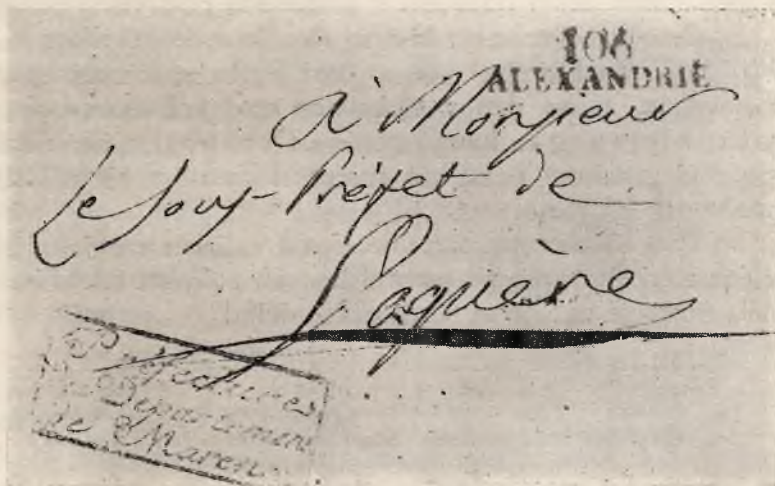 106
ALEXANDRIE
à Monsieur
Le Sous-Préfet de
Voguère
Préfecture
Département
de Maren